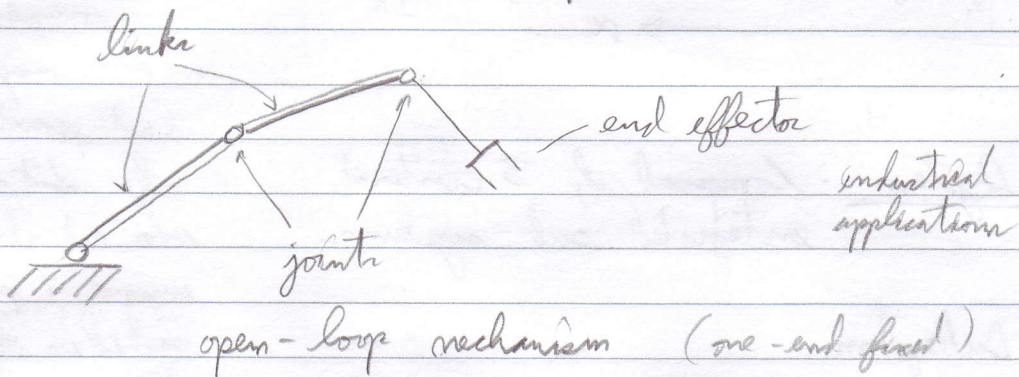 links
end effector
industrial
applications
joints
open-loop mechanism (one-end fixed)